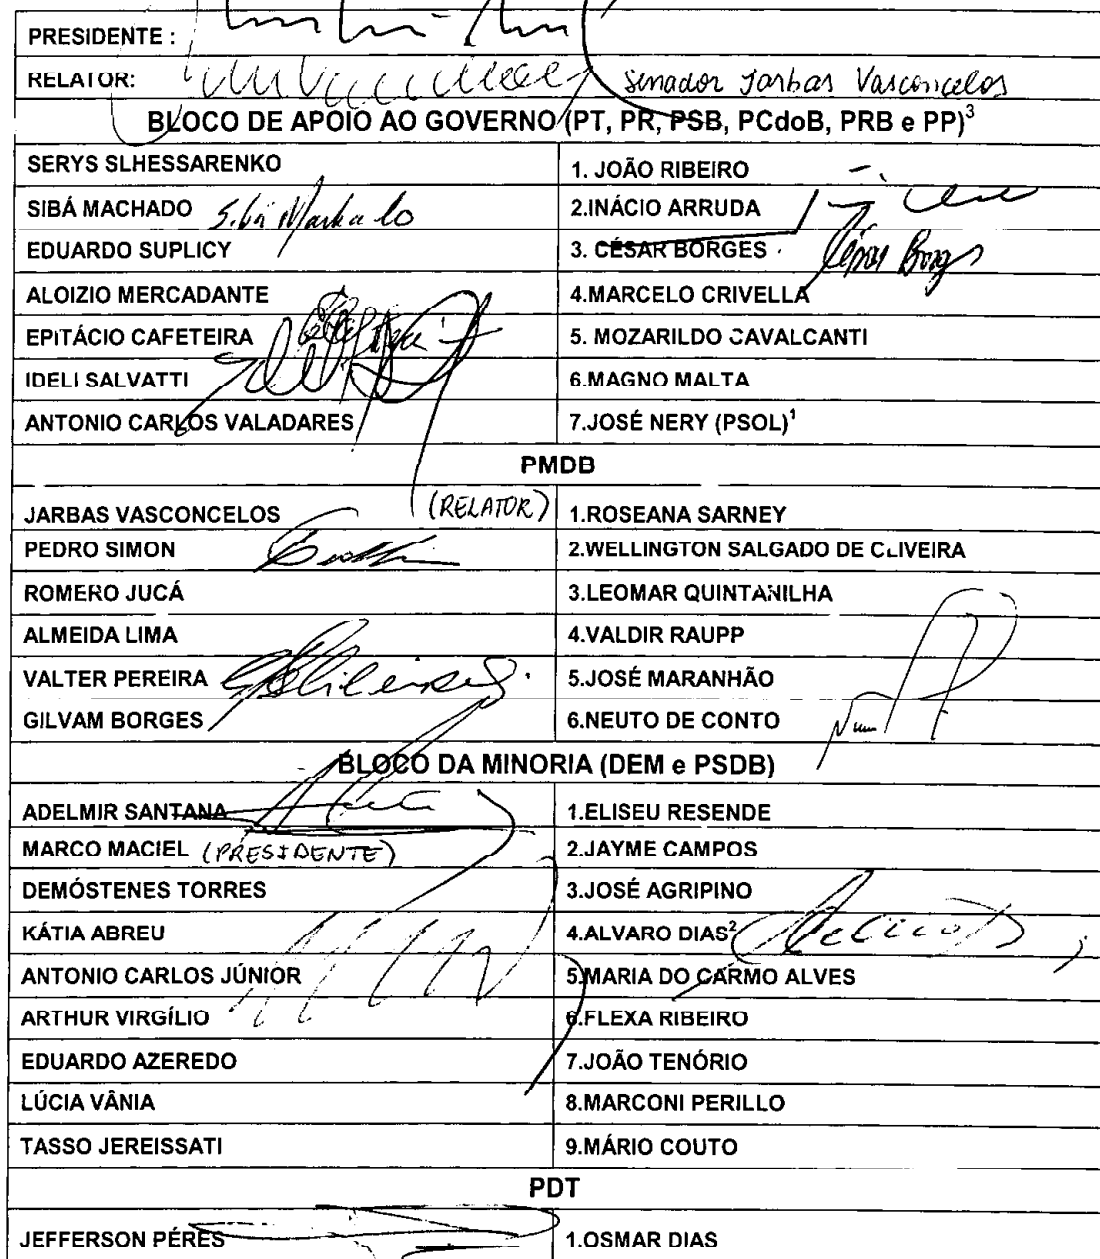 PRESIDENTE :
RELATOR: Senador Jarbas Vasconcelos
BLOCO DE APOIO AO GOVERNO (PT, PR, PSB, PCdoB, PRB e PP)³
SERYS SLHESSARENKO 1. JOÃO RIBEIRO
SIBÁ MACHADO Sibá Machado 2.INÁCIO ARRUDA
EDUARDO SUPLICY 3. CÉSAR BORGES César Borges
ALOIZIO MERCADANTE 4.MARCELO CRIVELLA
EPITÁCIO CAFETEIRA 5. MOZARILDO CAVALCANTI
IDELI SALVATTI 6.MAGNO MALTA
ANTONIO CARLOS VALADARES 7.JOSÉ NERY (PSOL)¹
PMDB
JARBAS VASCONCELOS (RELATOR) 1.ROSEANA SARNEY
PEDRO SIMON 2.WELLINGTON SALGADO DE OLIVEIRA
ROMERO JUCÁ 3.LEOMAR QUINTANILHA
ALMEIDA LIMA 4.VALDIR RAUPP
VALTER PEREIRA 5.JOSÉ MARANHÃO
GILVAM BORGES 6.NEUTO DE CONTO
BLOCO DA MINORIA (DEM e PSDB)
ADELMIR SANTANA 1.ELISEU RESENDE
MARCO MACIEL (PRESIDENTE) 2.JAYME CAMPOS
DEMÓSTENES TORRES 3.JOSÉ AGRIPINO
KÁTIA ABREU 4.ALVARO DIAS²
ANTONIO CARLOS JÚNIOR 5.MARIA DO CARMO ALVES
ARTHUR VIRGÍLIO 6.FLEXA RIBEIRO
EDUARDO AZEREDO 7.JOÃO TENÓRIO
LÚCIA VÂNIA 8.MARCONI PERILLO
TASSO JEREISSATI 9.MÁRIO COUTO
PDT
JEFFERSON PÉRES 1.OSMAR DIAS